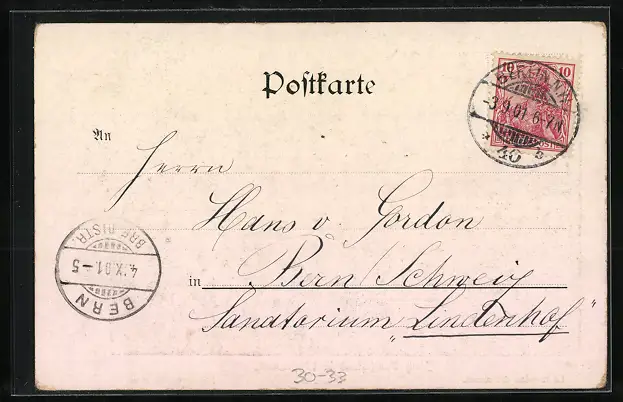 Postkarte
10
BERLIN N.W.
-3.9.01.6-7N.
* 40 b
An
Herrn
Hans v. Gordon
in Bern / Schweiz
Sanatorium „Lindenhof"
BRF. DISTR.
4.IX.01.-5
BERN
30-33